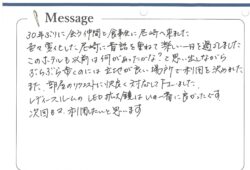 Message
30年ぶりに、会う仲間と食事会に尼崎へ来ました
々々 宴として尼崎に昔話を重ねて楽しい一日を過しました
このホテルも以前は何があったかな？と思い出しながら
ぶらぶら歩くのには立地が良い場所で利用を決めました
また、部屋のリクエストに快く対応して下さいました
レディースルームのLED 鏡は いの一番に良かったです
次回も又 利用したいと思います